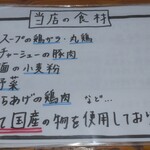 当店の食材
スープの鶏ガラ・丸鶏
チャーシューの豚肉
麺の小麦粉
野菜
らあげの鶏肉 など…
て国産の物を使用してお